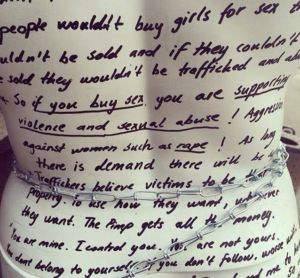 people wouldn't buy girls for sex
uldn't be sold and if they couldn't
sold they wouldn't be trafficked and
So if you buy sex you are supporting
violence and sexual abuse! Aggression
against women such as rape! As long
there is demand there will be
Traffickers believe victims to be
property to use how they want, wherever
they want. The Pimp gets all the money.
"You are mine. I control you. You are not yours.
You dont belong to yourself, if you don't follow, worse will
me to